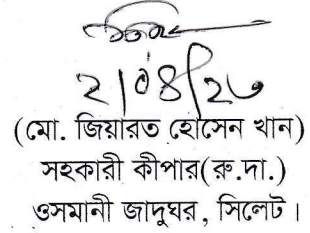 ২/০৪/২৩
(মো. জিয়ারত হোসেন খান)
সহকারী কীপার(রু.দা.)
ওসমানী জাদুঘর, সিলেট।